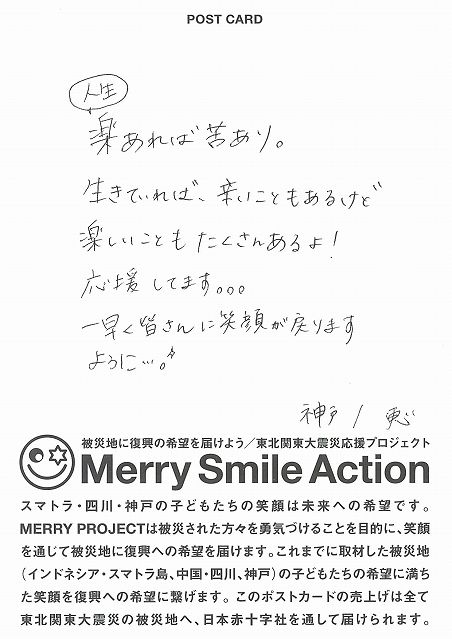 POST CARD
人生
楽あれば苦あり。
生きていれば、辛いこともあるけど
楽しいことも たくさんあるよ!
応援してます。。。
一早く皆さんに笑顔が戻ります
ように…。
神戸 / 恵
被災地に復興の希望を届けよう/東北関東大震災応援プロジェクト
Merry Smile Action
スマトラ・四川・神戸の子どもたちの笑顔は未来への希望です。
MERRY PROJECTは被災された方々を勇気づけることを目的に、笑顔
を通じて被災地に復興への希望を届けます。これまでに取材した被災地
(インドネシア・スマトラ島、中国・四川、神戸)の子どもたちの希望に満ち
た笑顔を復興への希望に繋げます。このポストカードの売上げは全て
東北関東大震災の被災地へ、日本赤十字社を通して届けられます。